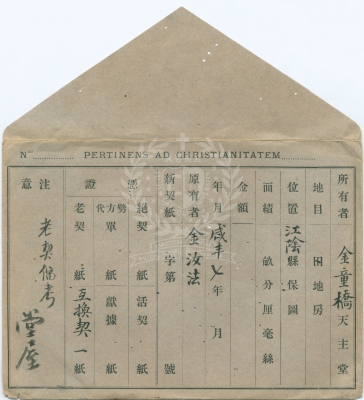 No PERTINENS AD CHRISTIANITATEM
所有者 金童橋 天主堂
地目 田地房
位置 江陰縣保圖
面績 畝分厘毫絲
金額
年月 咸丰七年 月
原有者 金汝法
新契紙 字第 號
憑證
絕契 紙 活契 紙
代方劵單 紙 獻據 紙
老契 紙 互換契 一紙
注意
老契備考
堂屋